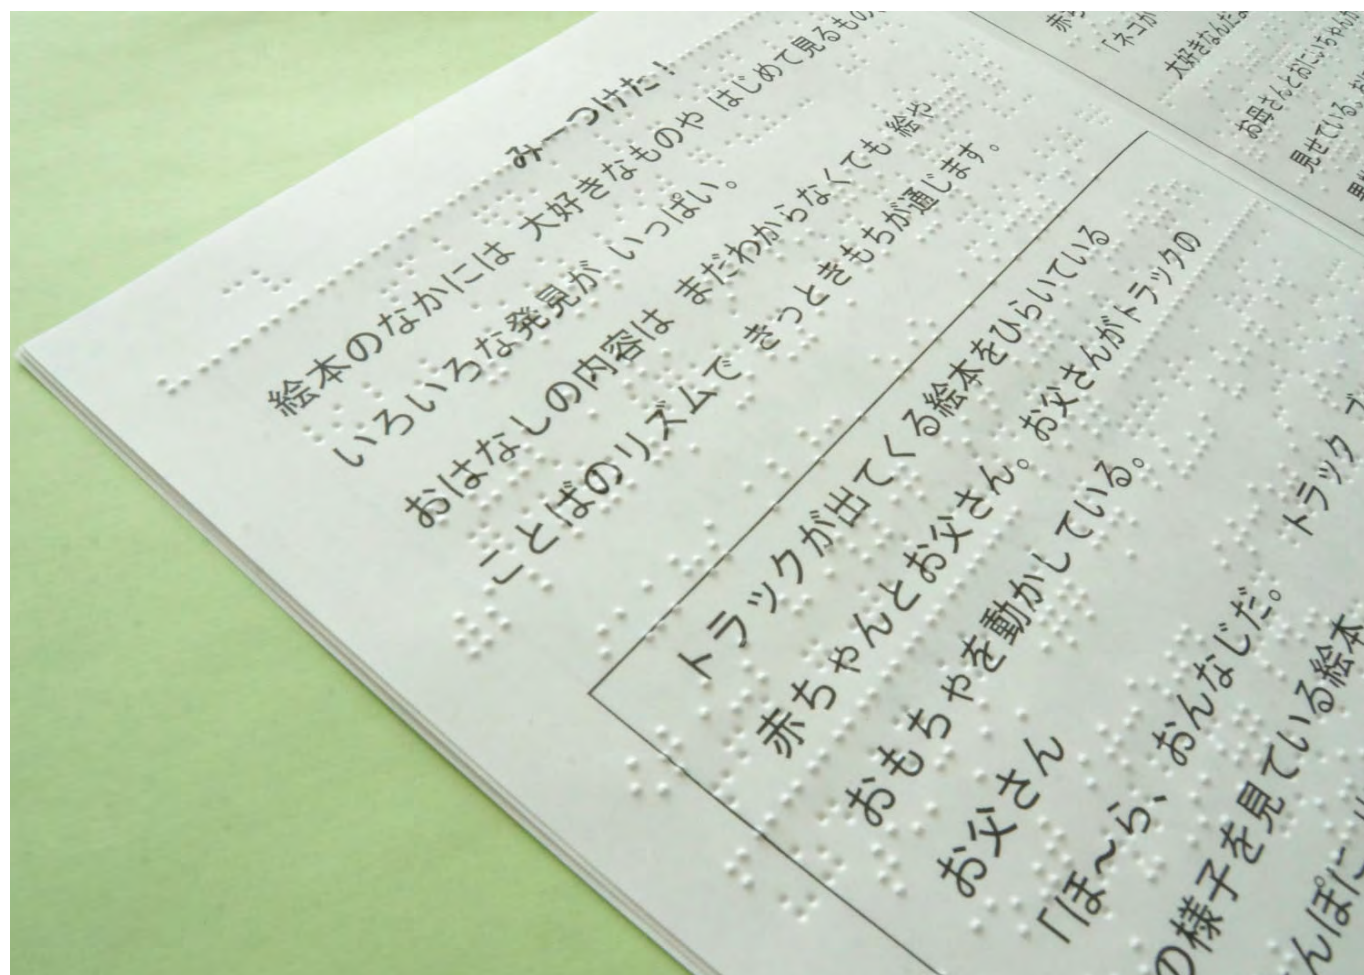 みーつけた！
絵本のなかには 大好きなものや はじめて見るもの
いろいろな発見が いっぱい。
おはなしの内容は まだわからなくても 絵や
ことばのリズムで きっときもちが通じます。
トラックが出てくる絵本をひらいている
赤ちゃんとお父さん。お父さんがトラックの
おもちゃを動かしている。
お父さん
「ほ〜ら、おんなじだ。
トラック ブ
の様子を見ている絵本
んぽに
赤
「ネコが
大好きなんだ
お母さんとおにいちゃんが
見せている。